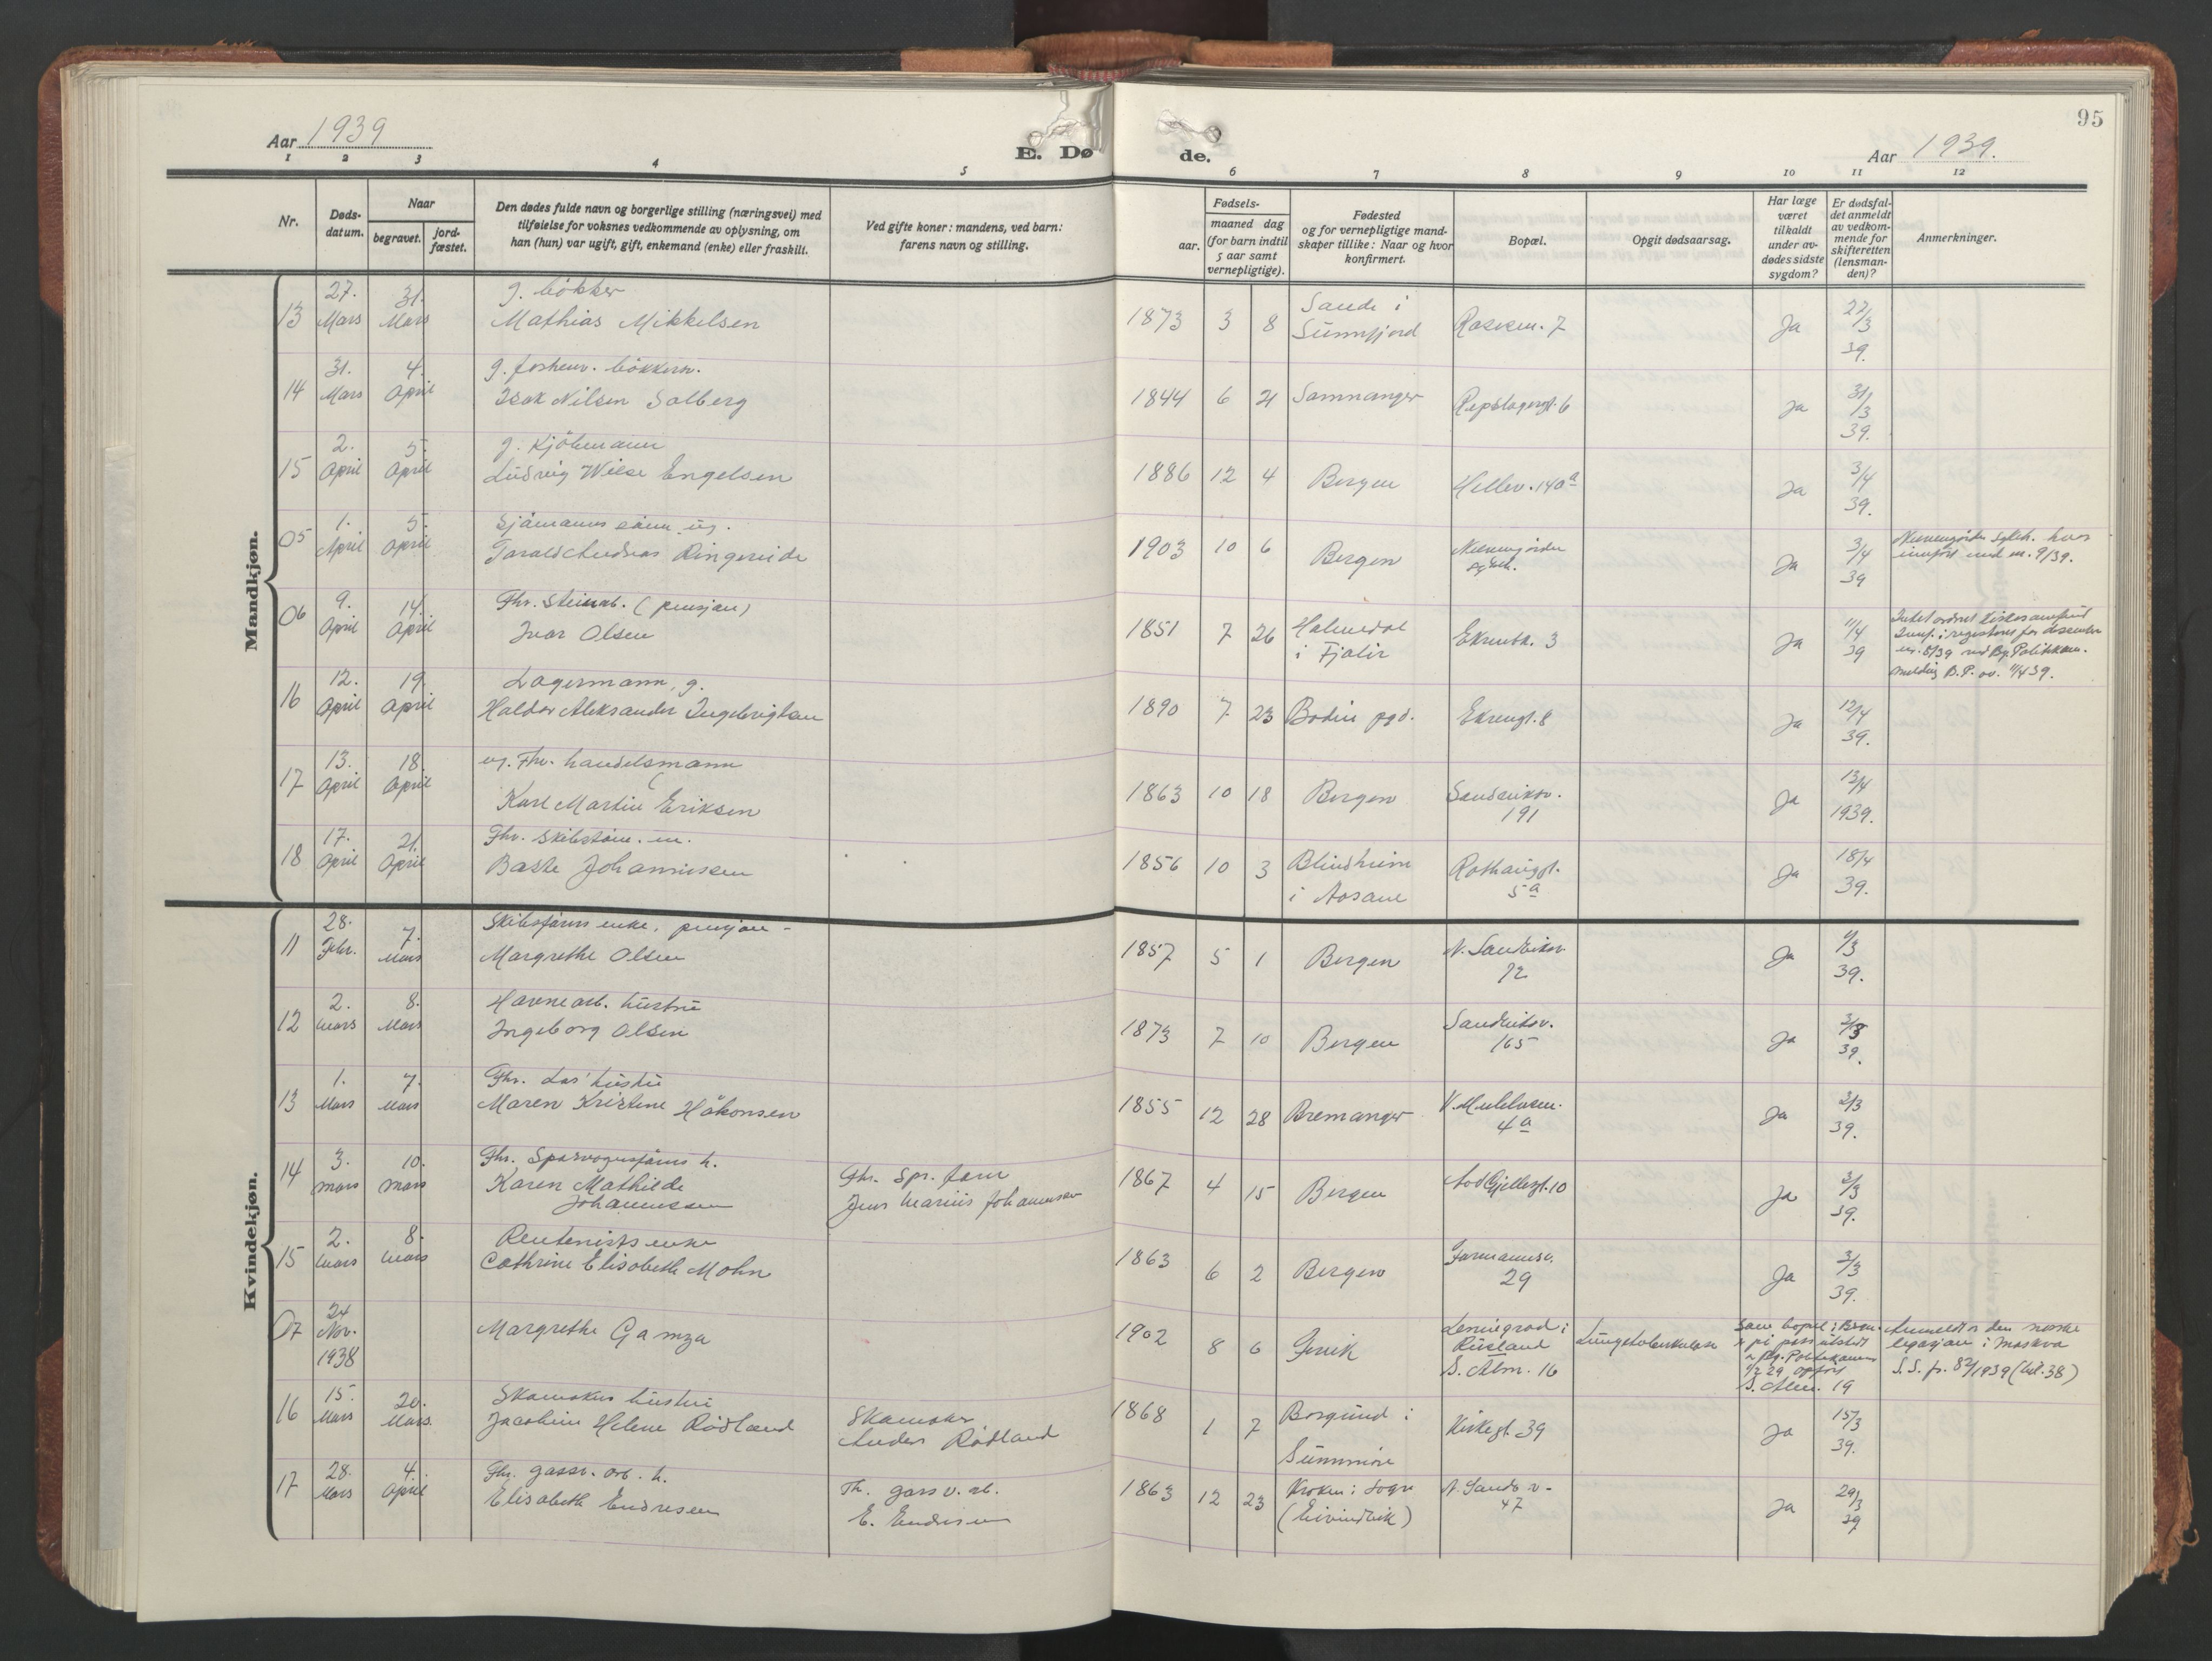 95
Aar 1939
E. Dø de.
Aar 1939.
1 2 3 4 5 6 7 8 9 10 11 12
Nr.
Døds-
datum.
Naar
begravet.
jord-
fæstet.
Den dødes fulde navn og borgerlige stilling (næringsvei) med
tilføielse for voksnes vedkommende av oplysning, om
han (hun) var ugift, gift, enkemand (enke) eller fraskilt.
Ved gifte koner: mandens, ved barn:
farens navn og stilling.
Fødsels-
aar.
maaned dag
(for barn indtil
5 aar samt
vernepligtige).
Fødested
og for vernepligtige mand-
skaper tillike: Naar og hvor
konfirmert.
Bopæl.
Opgit dødsaarsag.
Har læge
været
tilkaldt
under av-
dødes sidste
sygdom?
Er dødsfal-
det anmeldt
av vedkom-
mende for
skifteretten
(lensman-
den)?
Anmerkninger.
Mandkjøn.
27. 31. g. bøkker Sande i 22/3
13 Mars Mars Mathias Mikkelsen 1873 3 8 Sunnfjord 7 Ja 39.
31. 4. g. bøkkersv. 31/3
14 Mars April Isak Nilsen Solberg 1844 6 21 Samnanger Repslagergt. 6 Ja 39.
2. 5. g. Kjøbmann 3/4
15 April April Ludvig Wiese Engelsen 1886 12 4 Bergen Hellev. 140a Ja 39.
1. 5. Sjømanns sønn ug. 3/4 hvor
05 April April Ringereide 1903 10 6 Bergen Ja 39 innført med nr. 9/39.
9. 14. Fhv. Steinarb. (pensjon) 11/4
06 April April Ivar Olsen 1851 7 26 Holmedal i Fjaler Ekrenbk. 3 Ja 39
12. 19. Lagermann, g. 12/4
16 April April Haldor Aleksander Ingebrigtsen 1890 7 23 Bodin pgd. Ekrengt. 8 Ja 39.
13. 18. ug. Fhv. handelsmann 13/4
17 April April Karl Martin Eriksen 1863 10 18 Bergen Sandviksv. 191 Ja 1939.
17. 21. Fhv. 18/4
18 April April Johannissen 1856 10 3 Blindheim i Aasane Rothauggt. 5a Ja 39.
Kvindekjøn.
28. 7. Skibsførers enke, pensjon -
11 Febr. Mars Margrethe Olsen 1857 5 1 Bergen N. Sandviksv. 72 Ja 39.
2. 8. Havnearb. hustru
12 Mars Mars Ingeborg Olsen 1873 7 10 Bergen Sandviksv. 165 Ja 39.
1. 7. Fhv. Los' hustru 2/3
13 Mars Mars Maren Kristine Håkonsen 1855 12 28 Bremanger 4a Ja 39.
3. 10. Fhv. Sporvognsførers h. Fhv. Spr. fører 3/3
14 Mars Mars Karen Mathilde Johannessen Jens Marius Johannesen 1867 4 15 Bergen Aad Gjellesgt. 10 Ja 39.
2. 8. Rentenists enke 3/3
15 Mars Mars Cathrine Elisabeth Mohn 1863 6 2 Bergen Formannsv. 29 Ja 39.
24
07 Nov. 1938 Margrethe Gamza 1902 8 6 Leningrad i Rusland S. Alm. 16 Lungetuberkulose
S. Alm. 19
Anmeldt den norske
legasjon i Moskva
S. S. fr. 82/1939 (bil. 38)
15. 20. Skomakers hustru Skomaker 15/3
16 Mars Mars. Jacobine Helene Rødland Anders Rødland 1868 1 7 Borgund i Sunnmøre Kirkegt. 39 Ja 39.
28. 4. Fhv. gassv. arb. h. Fh. gassv. arb. 29/3
17 Mars April Elisabeth Endresen E. Endresen 1863 12 23 Kroken i Sogn (Eivindvik) N. Sandv. v. 47 Ja 39